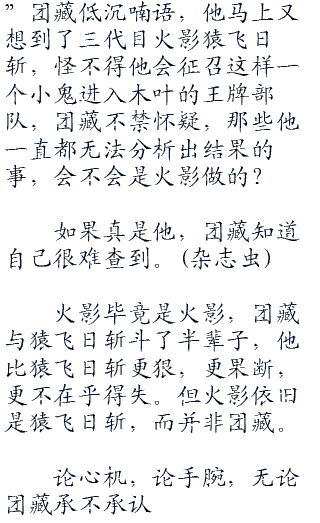 ”团藏低沉喃语，他马上又
想到了三代目火影猿飞日
斩，怪不得他会征召这样一
个小鬼进入木叶的王牌部
队，团藏不禁怀疑，那些他
一直都无法分析出结果的
事，会不会是火影做的？
如果真是他，团藏知道
自己很难查到。(杂志虫)
火影毕竟是火影，团藏
与猿飞日斩斗了半辈子，他
比猿飞日斩更狠，更果断，
更不在乎得失。但火影依旧
是猿飞日斩，而并非团藏。
论心机，论手腕，无论
团藏承不承认